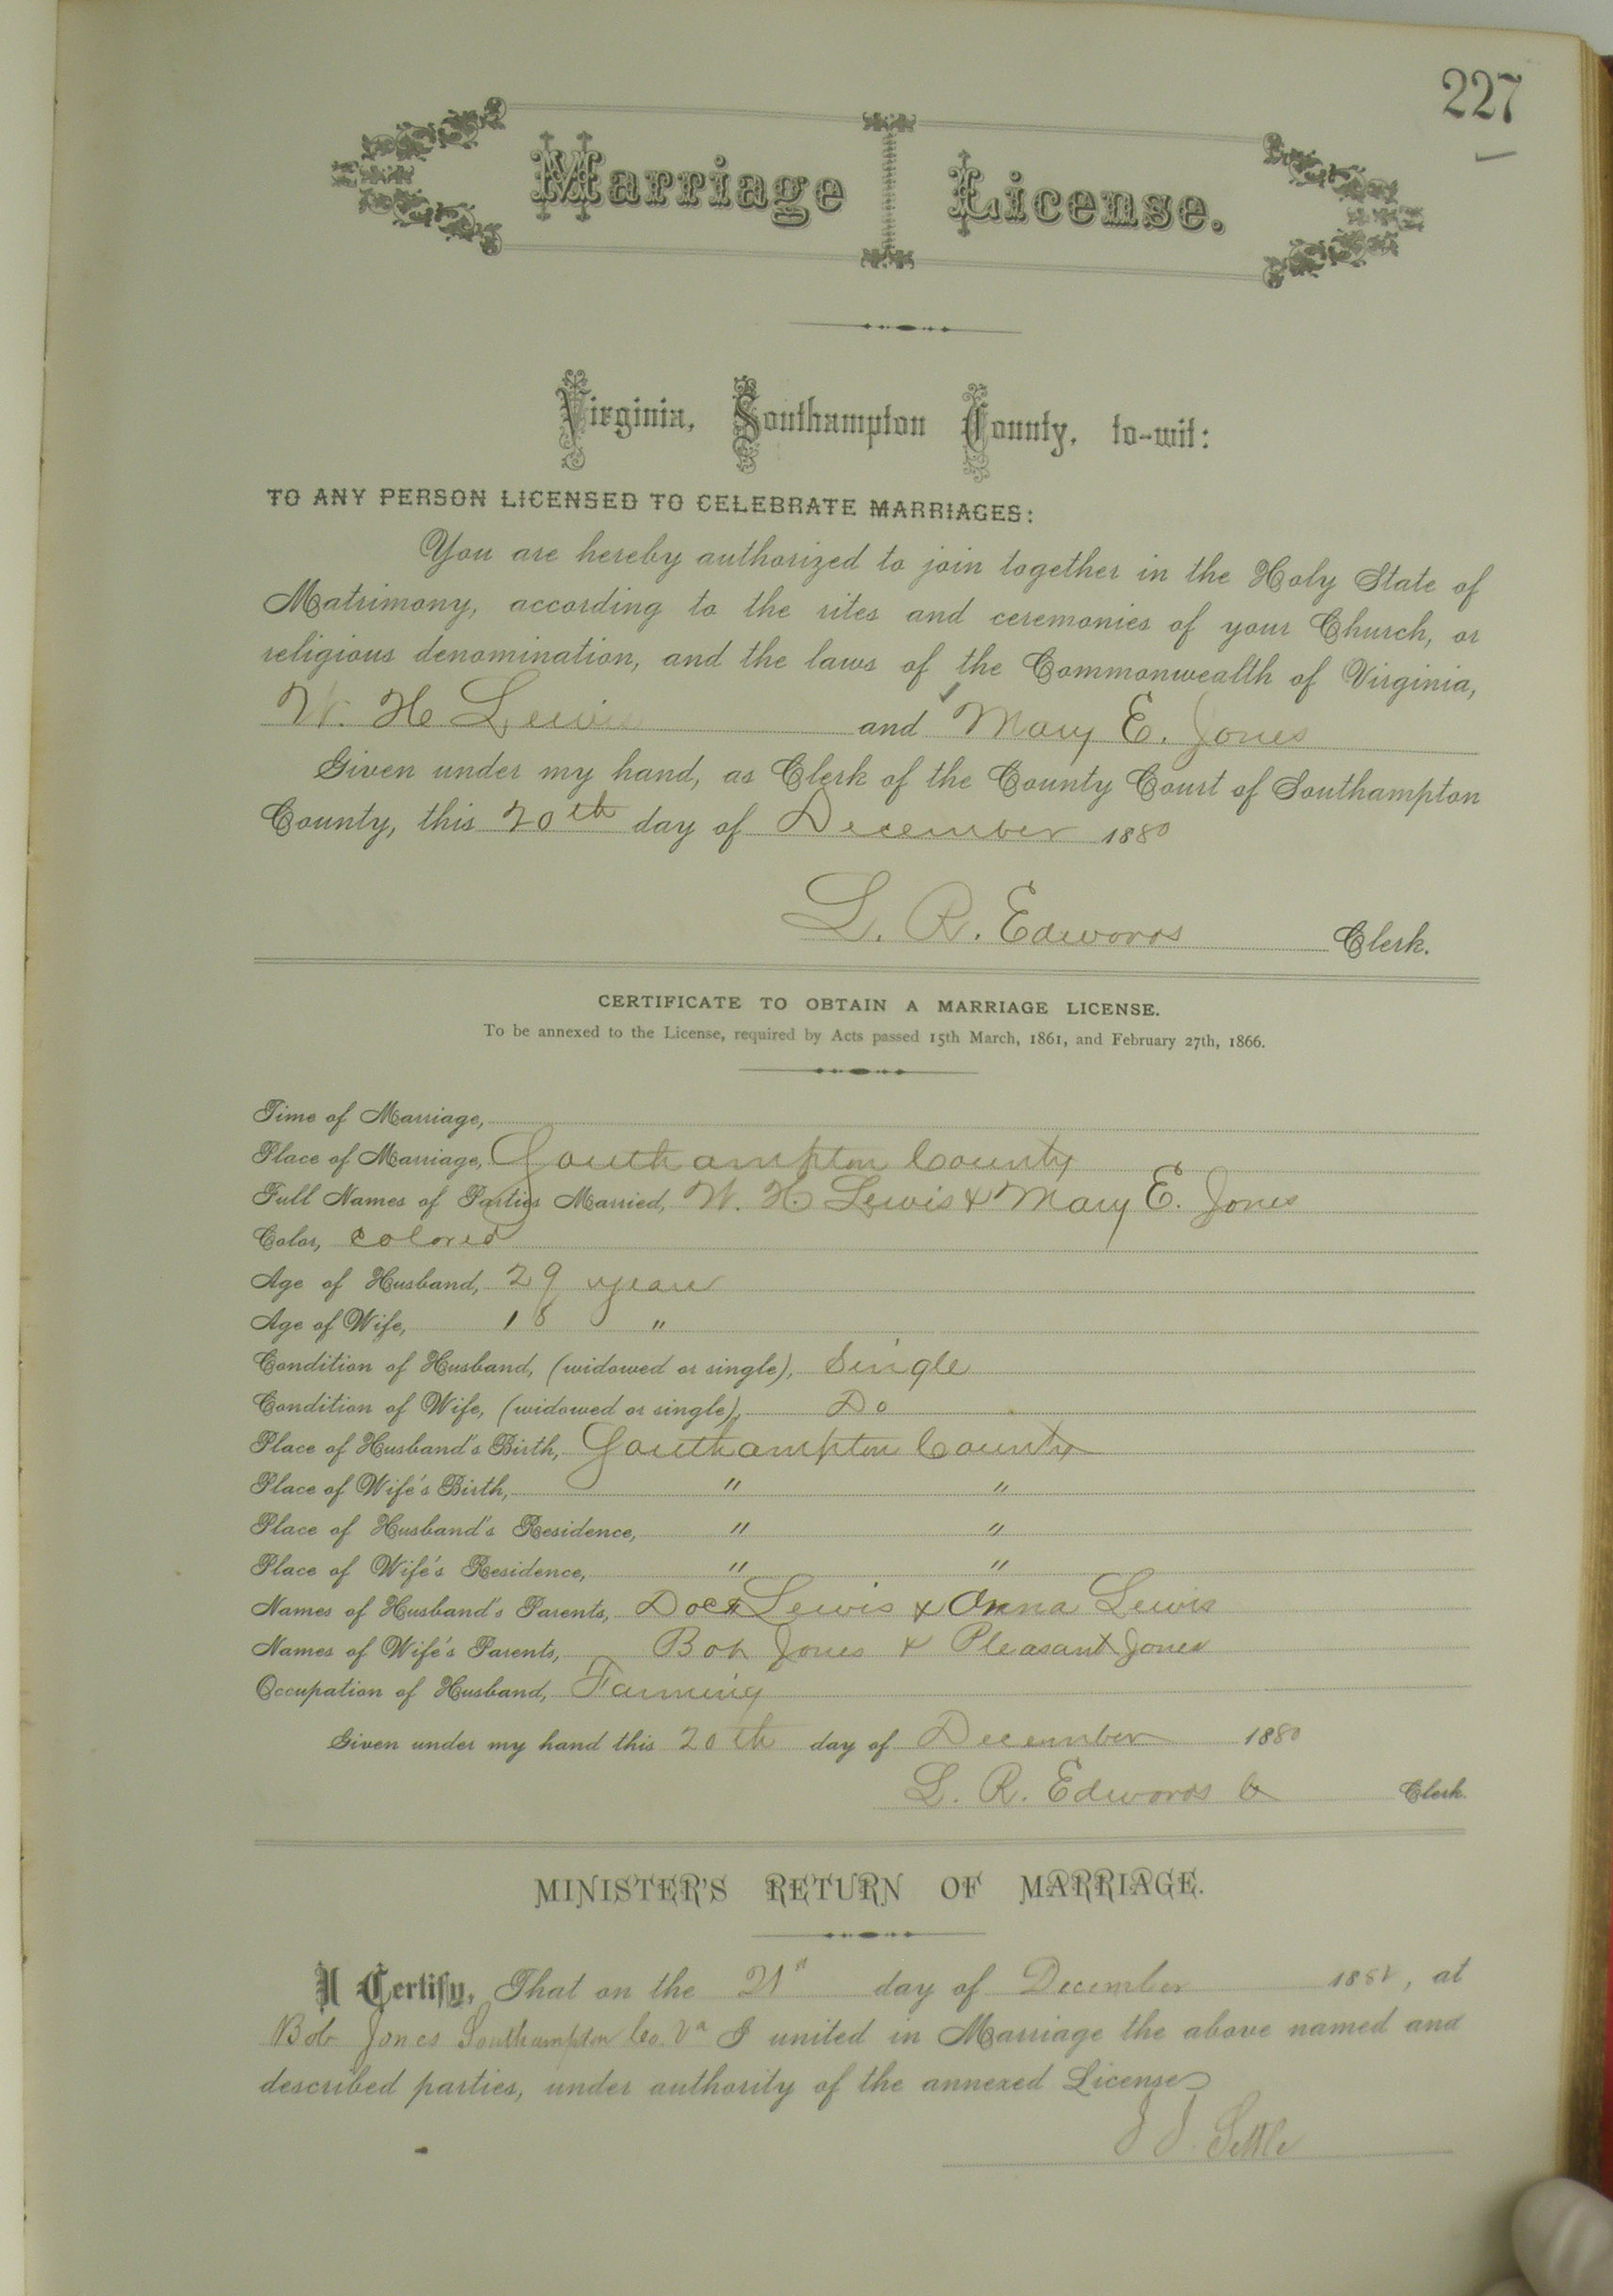 227
Marriage License.
Virginia, Southampton County, to-wit:
TO ANY PERSON LICENSED TO CELEBRATE MARRIAGES:
You are hereby authorized to join together in the Holy State of
Matrimony, according to the rites and ceremonies of your Church, or
religious denomination, and the laws of the Commonwealth of Virginia,
W. H Lewis and Mary E. Jones
Given under my hand, as Clerk of the County Court of Southampton
County, this 20th day of December 1880
L. R. Edwards Clerk.
CERTIFICATE TO OBTAIN A MARRIAGE LICENSE.
To be annexed to the License, required by Acts passed 15th March, 1861, and February 27th, 1866.
Time of Marriage,
Place of Marriage, Southampton County
Full Names of Parties Married, W. H. Lewis & Mary E. Jones
Color, colored
Age of Husband, 29 years
Age of Wife, 18 "
Condition of Husband, (widowed or single), Single
Condition of Wife, (widowed or single), Do
Place of Husband's Birth, Southampton County
Place of Wife's Birth, " "
Place of Husband's Residence, " "
Place of Wife's Residence, " "
Names of Husband's Parents, Lewis & Anna Lewis
Names of Wife's Parents, Bob Jones & Pleasant Jones
Occupation of Husband, Farming
Given under my hand this 20th day of December 1880
L. R. Edwards Clerk.
MINISTER'S RETURN OF MARRIAGE.
I Certify, That on the 21st day of December 188 , at
Bob Jones Southampton Co. Va I united in Marriage the above named and
described parties, under authority of the annexed License
J J. Settle